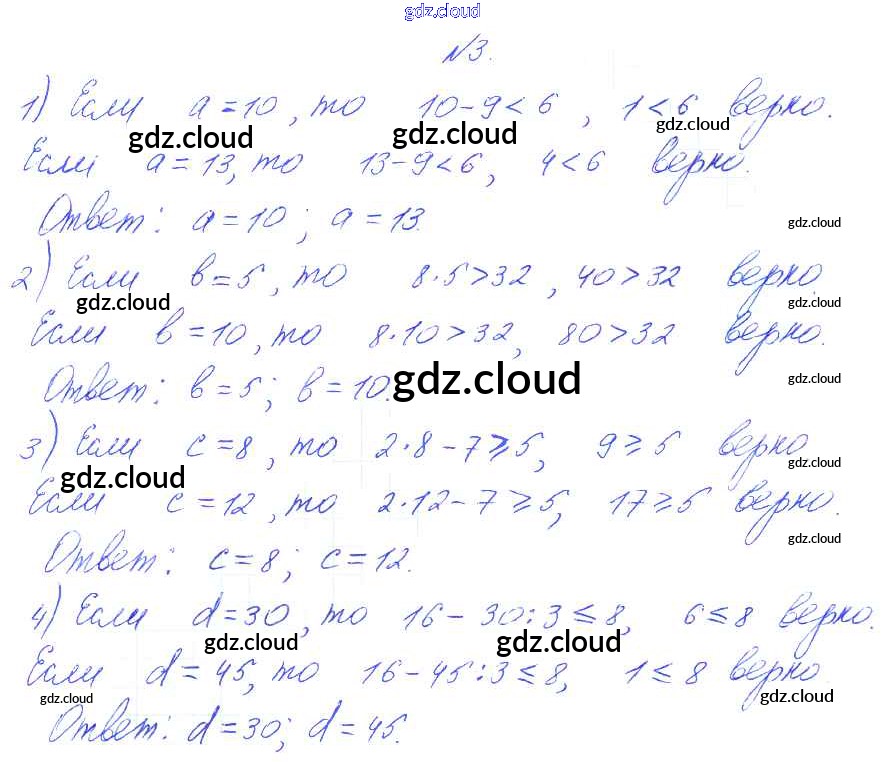 gdz.cloud
№3.
1) Если a=10, то 10-9<6, 1<6 верно.
gdz.cloud gdz.cloud gdz.cloud
Если a=13, то 13-9<6, 4<6 верно.
Ответ: a=10; a=13. gdz.cloud
2) Если в=5, то 8·5>32, 40>32 верно.
gdz.cloud gdz.cloud
Если в=10, то 8·10>32, 80>32 верно.
Ответ: в=5; в=10. gdz.cloud gdz.cloud
3) Если c=8, то 2·8-7⩾5, 9⩾5 верно
gdz.cloud gdz.cloud
Если c=12, то 2·12-7⩾5, 17⩾5 верно.
gdz.cloud
Ответ: c=8; c=12.
4) Если d=30, то 16-30:3≤8, 6≤8 верно.
gdz.cloud gdz.cloud
Если d=45, то 16-45:3≤8, 1≤8 верно.
gdz.cloud gdz.cloud
Ответ: d=30; d=45.